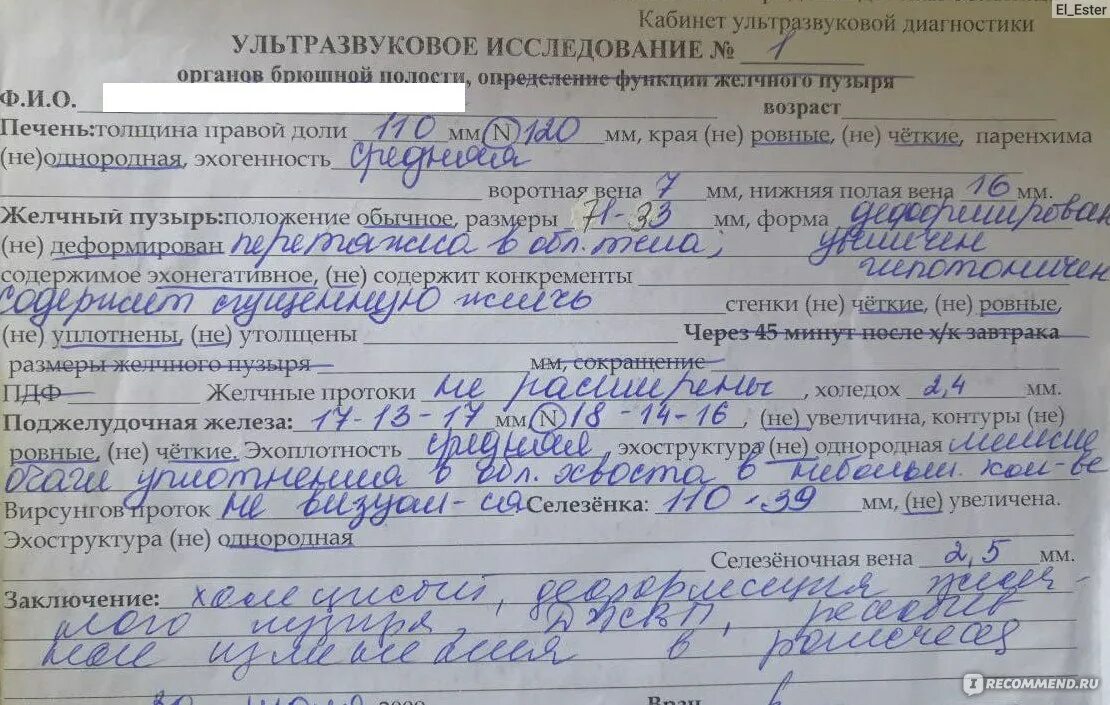 El_Ester
Кабинет ультразвуковой диагностики
УЛЬТРАЗВУКОВОЕ ИССЛЕДОВАНИЕ № 1
органов брюшной полости, определение функции желчного пузыря
Ф.И.О.
возраст
Печень:толщина правой доли 110 мм N 120 мм, края (не) ровные, (не) чёткие, паренхима
(не)однородная, эхогенность средняя
воротная вена 7 мм, нижняя полая вена 16 мм.
Желчный пузырь:положение обычное, размеры 71-33 мм, форма деформирован
(не) деформирован перетяжка в обл. тела, увеличен
гипотоничен
содержимое эхонегативное, (не) содержит конкременты
содержит сгущенную желчь стенки (не) чёткие, (не) ровные,
(не) уплотнены, (не) утолщены Через 45 минут после х/к завтрака
размеры желчного пузыря мм, сокращение
ПДФ Желчные протоки не расширены, холедох 2,4 мм.
Поджелудочная железа: 17-13-17 мм N 18-14-16, (не) увеличина, контуры (не)
ровные, (не) чёткие. Эхоплотность средняя, эхоструктура (не) однородная мелкие
очаги уплотнения в обл. хвоста в небольш. кол-ве
Вирсунгов проток не визуал-ся Селезёнка: 110-39 мм, (не) увеличена.
Эхоструктура (не) однородная
Селезёночная вена 2,5 мм.
Заключение: холецистит, деформация желч-
ного пузыря, ДЖВП, реактив
ные изменения в
Врач
IRECOMMEND.RU